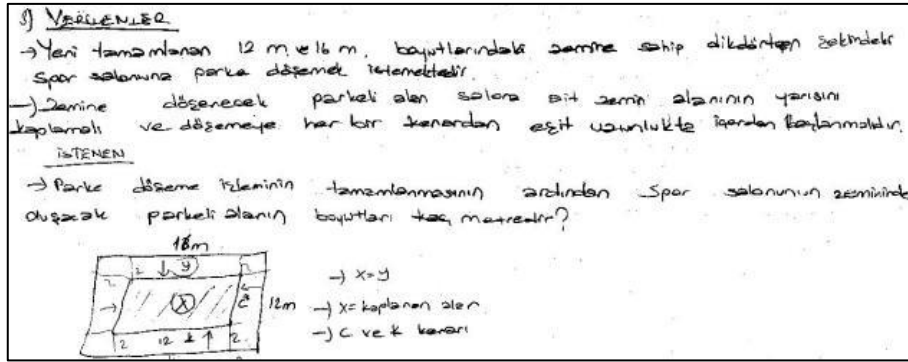 1) VERİLENLER
→ Yeni tamamlanan 12 m ve 16 m. boyutlarındaki zemine sahip dikdörtgen şeklindeki
spor salonuna parke döşemek istemektedir.
→ Zemine döşenecek parkeli alan salona ait zemin alanının yarısını
kaplamalı ve döşemeye her bir kenardan eşit uzunlukta içerden başlanmalıdır.
İSTENEN
→ Parke döşeme işleminin tamamlanmasının ardından spor salonunun zemininde
oluşacak parkeli alanın boyutları kaç metredir?
16m
2 ↓ y 2
2 2
→ x ←
→ x=y
c 12m → x= kaplanan alan
→ c ve k kenarı
2 12 k ↑ 2